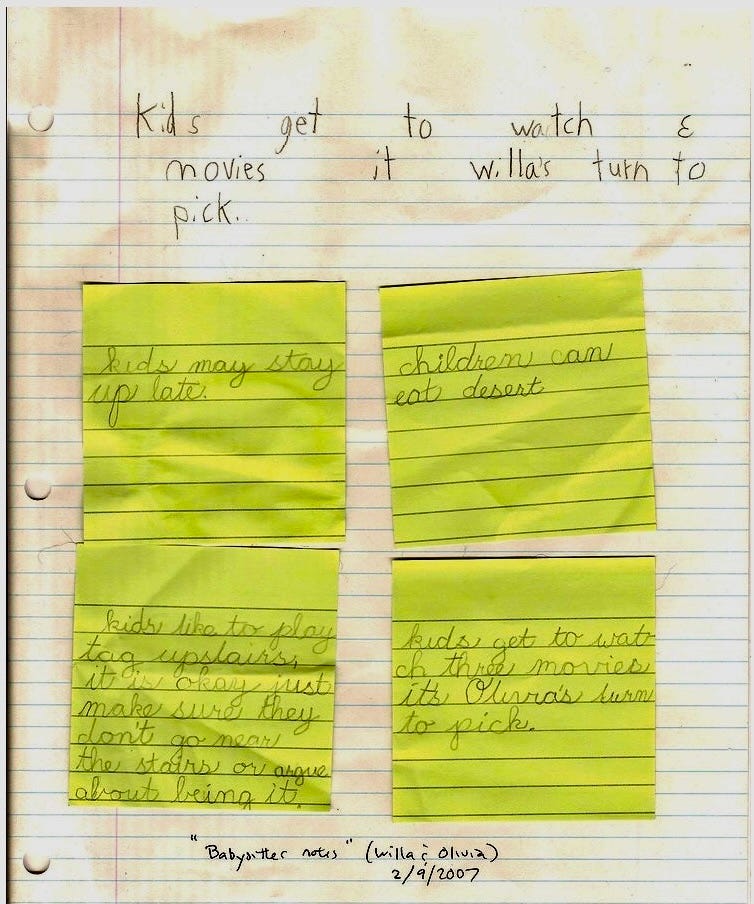 Kids get to watch 3
movies it willa's turn to
pick.
kids may stay
up late.
children can
eat desert
kids like to play
tag upstairs,
it is okay just
make sure they
don't go near
the stairs or argue
about being it.
kids get to wat
ch three movies
it's Olivia's turn
to pick.
"Babysitter notes" (Willa & Olivia)
2/9/2007